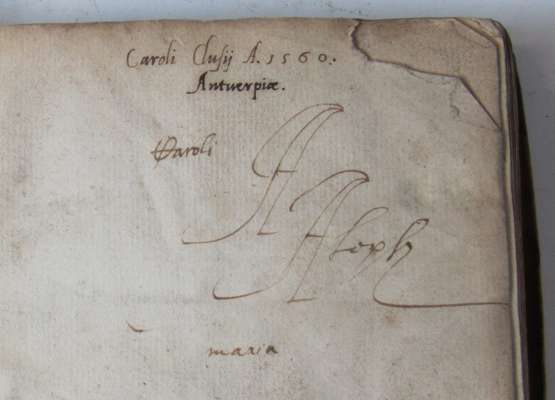 Caroli Clusij A. 1560.
Antverpiæ.
Caroli
A
Aleph
maria